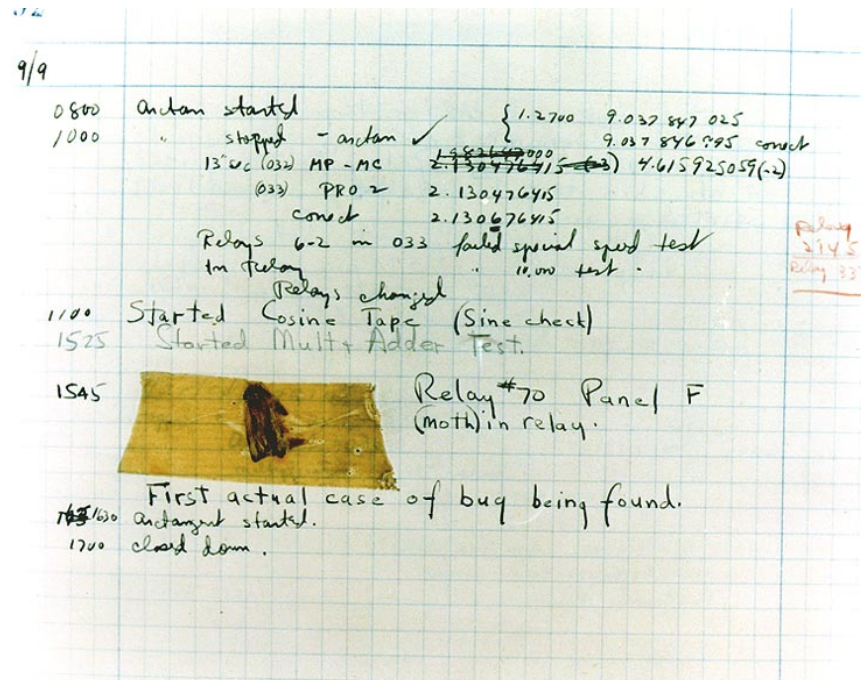 9/9
0800 antan started { 1.2700 9.037 847 025
1000 " stopped - antan ✓ 9.037 846 995 conect
13"uc (032) MP - MC 2.130476415 (-3) 4.615925059(-2)
(033) PRO 2 2.130476415
conect 2.130676415
Relays 6-2 in 033 failed special speed test
In Relay " 10,000 test .
Relays changed
1100 Started Cosine Tape (Sine check)
1525 Started Mult + Adder Test.
1545 Relay #70 Panel F
(moth) in relay.
First actual case of bug being found.
1630 arctangent started.
1700 closed down .
Relay
2145
Relay 33